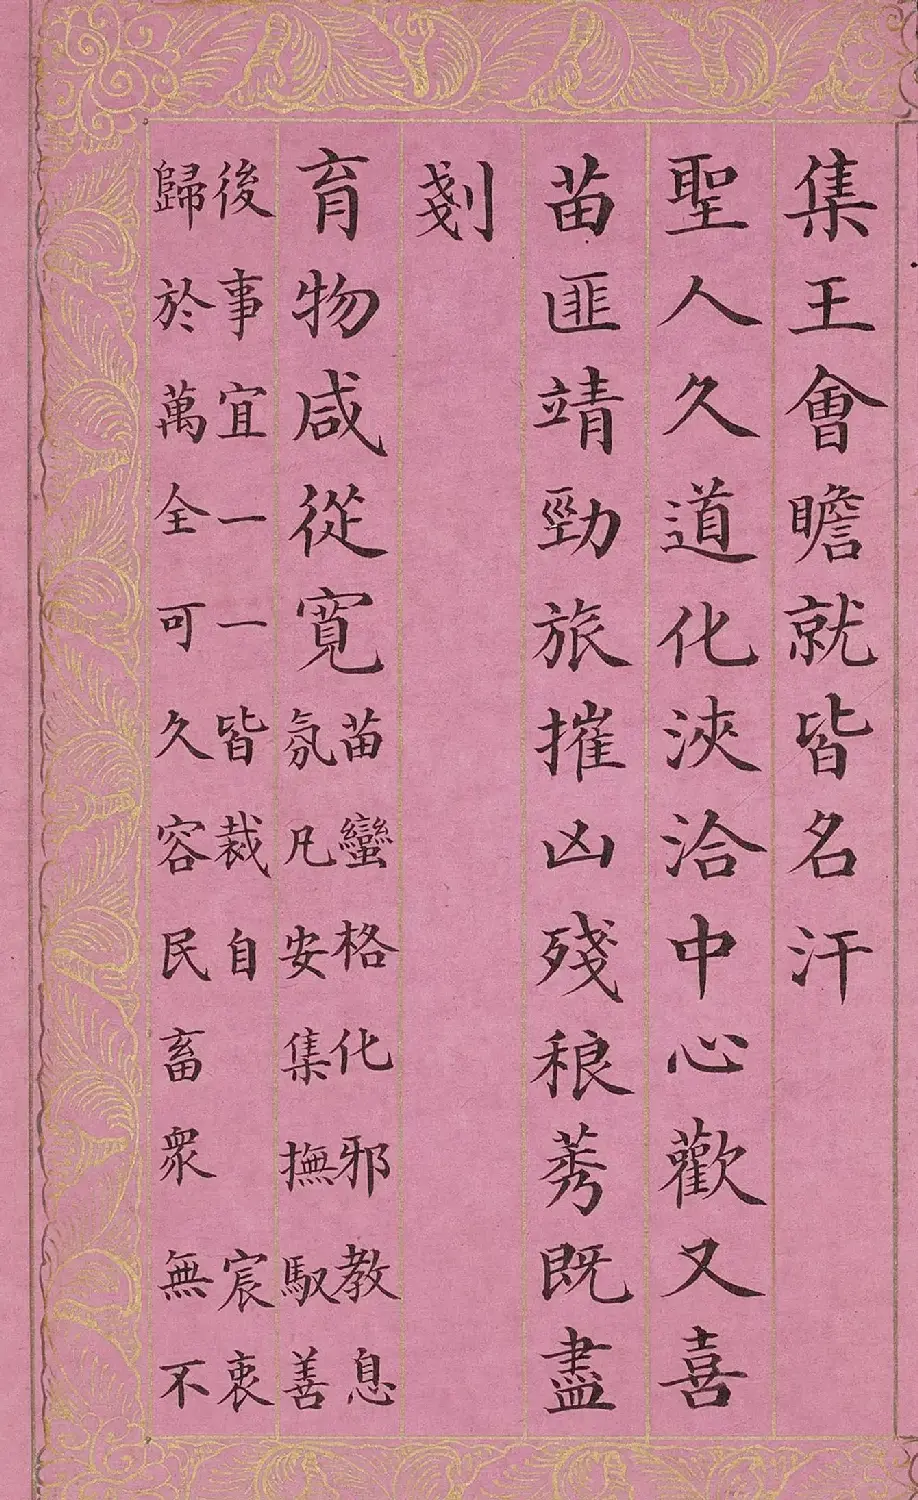 集王會瞻就皆名汗
聖人久道化浹洽中心歡又喜
苗匪靖勁旅摧凶殘稂莠既盡
剗
育物咸從寬
苗蠻格化邪教息
氛凡安集撫馭善
後事宜一一皆裁自 宸衷
歸於萬全可久容民畜衆無不